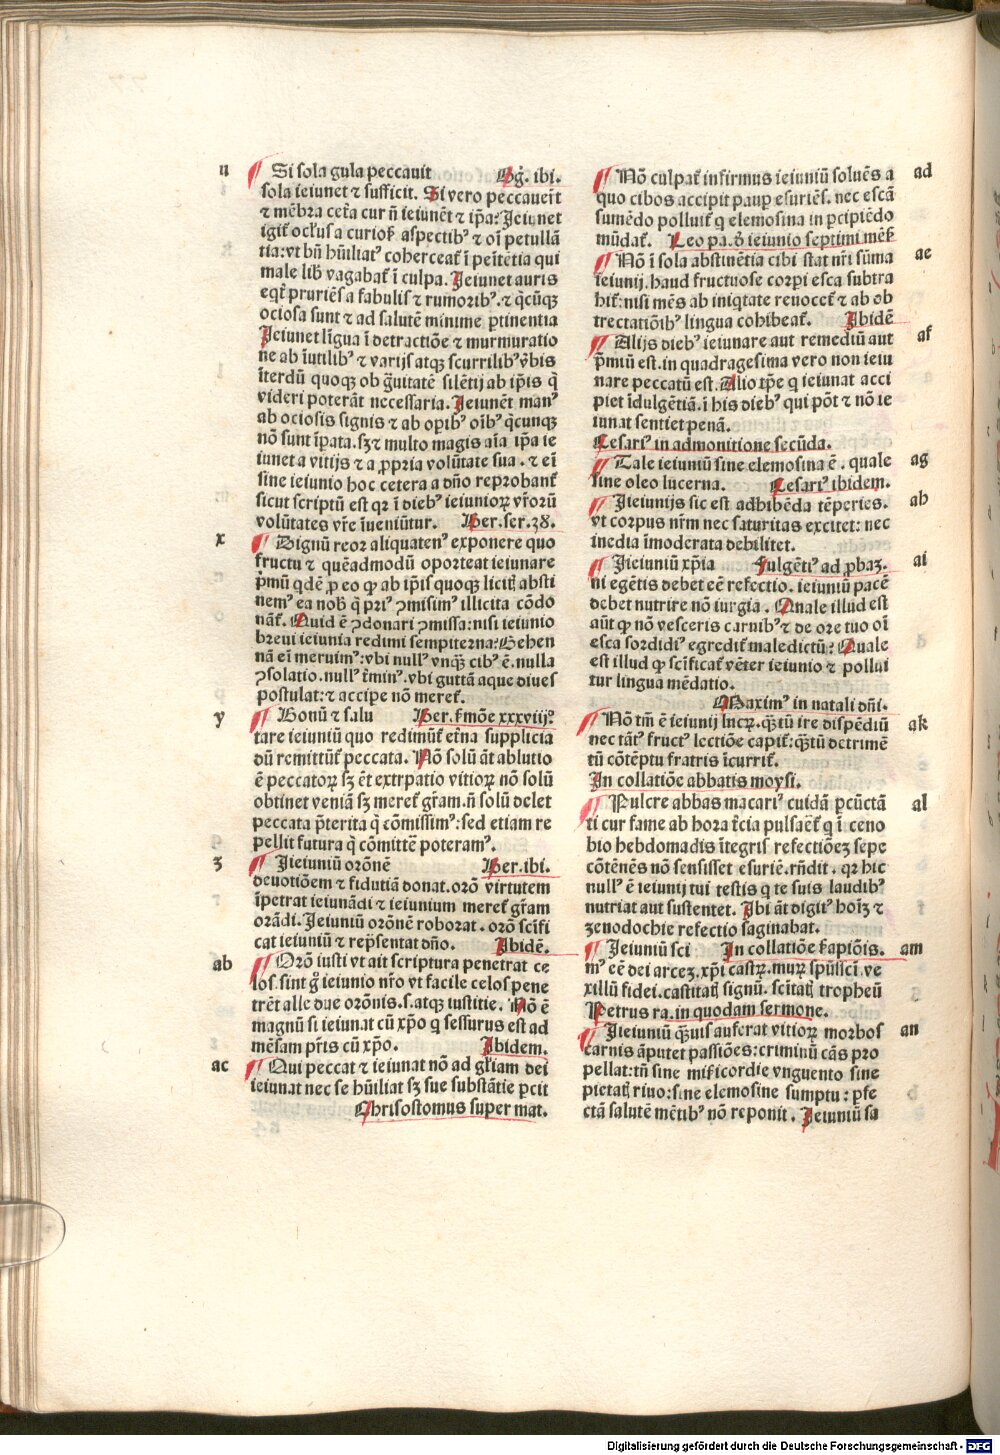 u
Si sola gula peccauit Gg̃. ibi.
sola ieiunet ⁊ sufficit. Si vero peccauer̄t
⁊ mēbra cet̃a cur ñ ieiunēt ⁊ ip̃a? Jeiunet
igit̃ ocl̃us a curiosꝭ aspectibꝰ ⁊ oī petullā
tia: vt bñ hūiliatꝰ coherceat̃ ī pēitētia qui
male libꝭ vagabat̃ ī culpa. Jeiunet auris
eqt̃ pruriēs a fabulis ⁊ rumoribꝰ. ⁊ q̃cūqꝫ
ociosa sunt ⁊ ad salutē minime ꝑtinentia
Jeiunet līgua ī detractiōe ⁊ murmuratio
ne ab īutilibꝰ ⁊ varijs atqꝫ scurrilibꝰ v̄bis
īterdū quoqꝫ ob g̃uitatē silētij ab ip̃is q̃
videri poterāt necessaria. Jeiunēt manꝰ
ab ociosis signis ⁊ ab oꝑibꝰ oībꝰ q̃cunqꝫ
nō sunt īpata. sꝫ ⁊ multo magis aīa ip̃a ie
iunet a vitijs ⁊ a ꝓpria volūtate sua. ⁊ eī
sine ieiunio hoc cetera a dño reprobant̃
sicut scriptū est qꝛ ī diebꝰ ieiunioꝝ vr̄orū
volūtates vr̄e īueniūtur. Ber. ser. 38.
x
Dignū reor aliquatenꝰ exponere quo
fructu ⁊ quēadmodū oporteat ieiunare
p̄mū qdē ꝓ eo ꝙ ab ip̃is quoqꝫ licitꝭ absti
nemꝰ ea nobꝭ q̃ priꝰ ꝯmisimꝰ illicita cōdo
nāt̃. Quid ē ꝯdonari ꝯmissa: nisi ieiunio
breui ieiunia redimi sempiterna: Gehen
nā eī meruimꝰ: vbi nullꝰ vnqꝫ cibꝰ ē. nulla
ꝯsolatio. nullꝰ t̃minꝰ. vbi guttā aque diues
postulat: ⁊ accipe nō meret̃.
y
Bonū ⁊ salu Ber. s̃mōe xxxviijꝰ
tare ieiuniū quo redimūt̃ et̃na supplicia
dū remittūt̃ peccata. Nō solū āt ablutio
ē peccatoꝝ sꝫ ēt extrpatio vitioꝝ nō solū
obtinet veniā sꝫ meret̃ gr̃am. ñ solū delet
peccata p̄terita q̃ cōmissimꝰ: sed etiam re
pellit futura q̃ cōmittē poteramꝰ.
z
Jieiuniū orōnē Ber. ibi.
deuotiōem ⁊ fidutiā donat. orō virtutem
īpetrat ieiunādi ⁊ ieiunium meret̃ gr̃am
orādi. Jeiuniū orōnē roborat. orō scīfi
cat ieiuniū ⁊ rep̃sentat dño. Ibidē.
ab
Orō iusti vt ait scriptura penetrat ce
los. sint ḡ ieiunio nr̄o vt facile celos pene
trēt alle due orōnis. s. atqꝫ iustitie. Nō ē
magnū si ieiunat cū xp̃o q sessurus est ad
mēsam pr̄is cū xp̃o. Ibidem.
ac
Qui peccat ⁊ ieiunat nō ad gl̃iam dei
ieiunat nec se hūiliat sꝫ sue substātie ꝑcit
Chrisostomus super mat.
ad
Nō culpat̃ infirmus ieiuniū soluēs a
quo cibos accipit pauꝑ esuriēs. nec escā
sumēdo polluit̃ q elemosina in ꝑcipiēdo
mūdat̃. Leo pa. d̃ ieiunio septimi mēs̃
ae
Nō ī sola abstinētia cibi stat nr̄i sūma
ieiunij. haud fructuose corpi esca subtra
hit̃: nisi mēs ab iniqtate reuocet̃ ⁊ ab ob
trectatiōibꝰ lingua cohibeat̃. Ibidē
af
Alijs diebꝰ ieiunare aut remediū aut
p̄miū est. in quadragesima vero non ieiu
nare peccatū est. Alio tp̄e q ieiunat acci
piet īdulgētiā. ī his diebꝰ qui pōt ⁊ nō ie
iunat sentiet penā.
Cesariꝰ in admonitione secūda.
ag
Tale ieiuniū sine elemosina ē. quale
sine oleo lucerna. Cesariꝰ ibidem.
ah
Jieiunijs sic est adhibēda tēperies.
vt corpus nr̄m nec saturitas excitet: nec
inedia īmoderata debilitet.
ai
Jieiuniū xp̃ia Fulgētiꝰ ad ꝓbaꝫ.
ni egētis debet eē refectio. ieiuniū pacē
debet nutrire nō iurgia. Quale illud est
aūt ꝙ nō vesceris carnibꝰ ⁊ de ore tuo oī
esca sordidiꝰ egredit̃ maledictū: Quale
est illud ꝙ scīficat̃ vēter ieiunio ⁊ pollui
tur lingua mēdatio.
Maximꝰ in natali dñi.
ak
Nō tm̄ ē ieiunij lucꝝ. q̃tū ire dispēdiū
nec tātꝰ fructꝰ lectiōe capit̃: q̃tū detrimē
tū cōtēptu fratris īcurrit̃.
In collatiōe abbatis moysi.
al
Pulcre abbas macariꝰ cuidā ꝑcūctā
ti cur fame ab hora t̃cia pulsaēt̃ q ī ceno
bio hebdomadis ītegris refectiōeꝫ sepe
cōtēnēs nō sensisset esuriē. rñdit. qꝛ hic
nullꝰ ē ieiunij tui testis q te suis laudibꝰ
nutriat aut sustentet. Ibi āt digitꝰ hoīꝫ ⁊
zenodochie refectio saginabat.
am
Jeiuniū sci In collatiōe s̃apiōis.
mꝰ eē dei arceꝫ. xp̃i castꝝ. muꝝ spūssci. ve
xillū fidei. castitatꝭ signū. scītatꝭ tropheū
Petrus ra. in quodam sermone.
an
Jieiuniū q̃uis auferat vitioꝝ morbos
carnis āputet passiōes: criminū cās pro
pellat: tñ sine mīs̃icordie vnguento sine
pietatꝭ riuo: sine elemosine sumptu: ꝑfe
ctā salutē mētibꝰ nō reponit. Jeiuniū sa
Digitalisierung gefördert durch die Deutsche Forschungsgemeinschaft - DFG